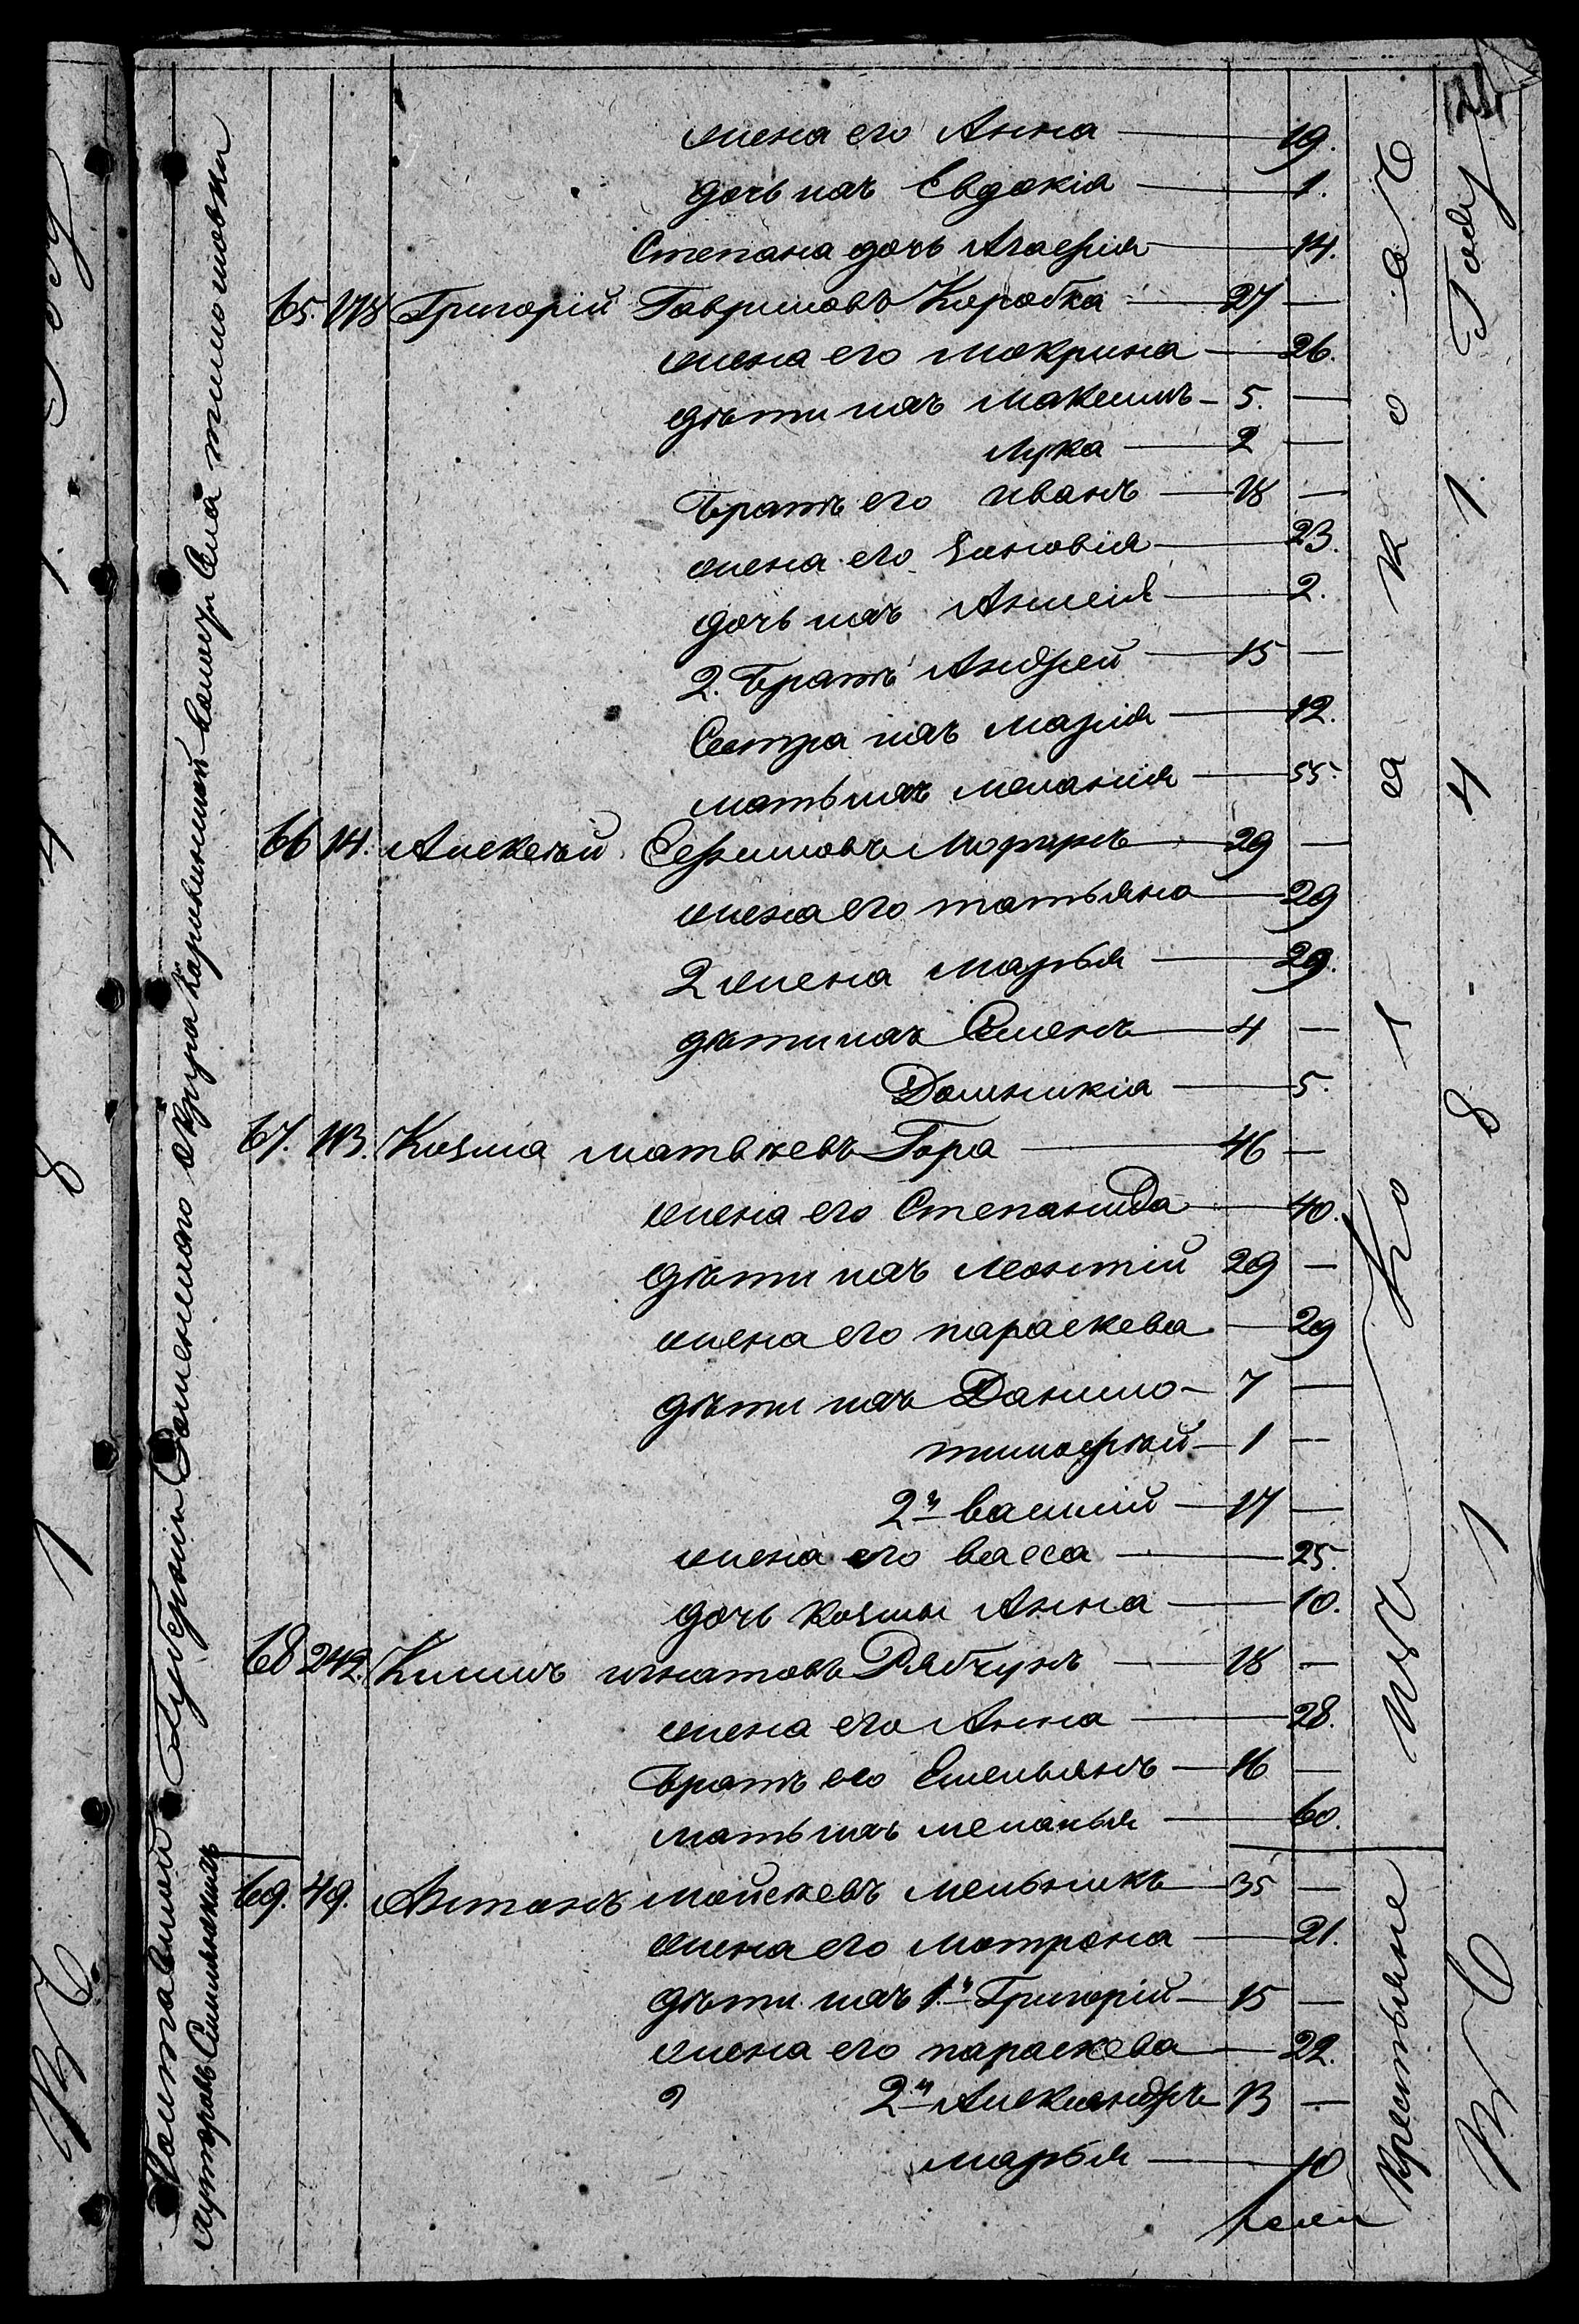 124
жена его Анна — 19.
дочь ихъ Евдокія — 1.
Степана дочь Агафія — 14.
65. 118 Григорій Гавриловъ Коробка — 27 —
жена его Макрина — 26.
дѣти ихъ Максимъ — 5. —
Лука — 2 —
Братъ его Иванъ — 18 —
жена его Зиновія — 23.
дочь ихъ Анисія — 2.
2. Братъ Андрей — 15 —
Сестра ихъ Марія — 12.
мать ихъ Меланія — 55.
66 14. Алексѣй Ефимовъ — 29 —
жена его татьяна — 29
2 жена марья — 29.
дѣти ихъ Семенъ — 4 —
Домникія — 5.
67. 113. Козма матвѣевъ Гора — 46 —
жена его Степанида — 40.
дѣти ихъ Леонтій 29 —
жена его параскева — 29
дѣти ихъ Данило — 7 —
тимофѣй — 1 —
2й василій — 17 —
жена его васса — 25.
дочь козмы Анна — 10.
68 242. Климъ игнатовъ Рябчунъ — 18 —
жена его Анна — 28.
Братъ его Емельянъ — 16 —
мать ихъ меланья — 60.
69. 49. Антонъ мойсѣевъ мельникъ — 35 —
жена его мотрона — 21.
дѣти ихъ 1й Григорій — 15 —
жена его параскева — 22.
2й Александръ 13 —
марья — 10
Полтавской Губерніи округа Села тимошовки
изъ Ко
Крестьяне
В С 1 8 - 4 1. Году